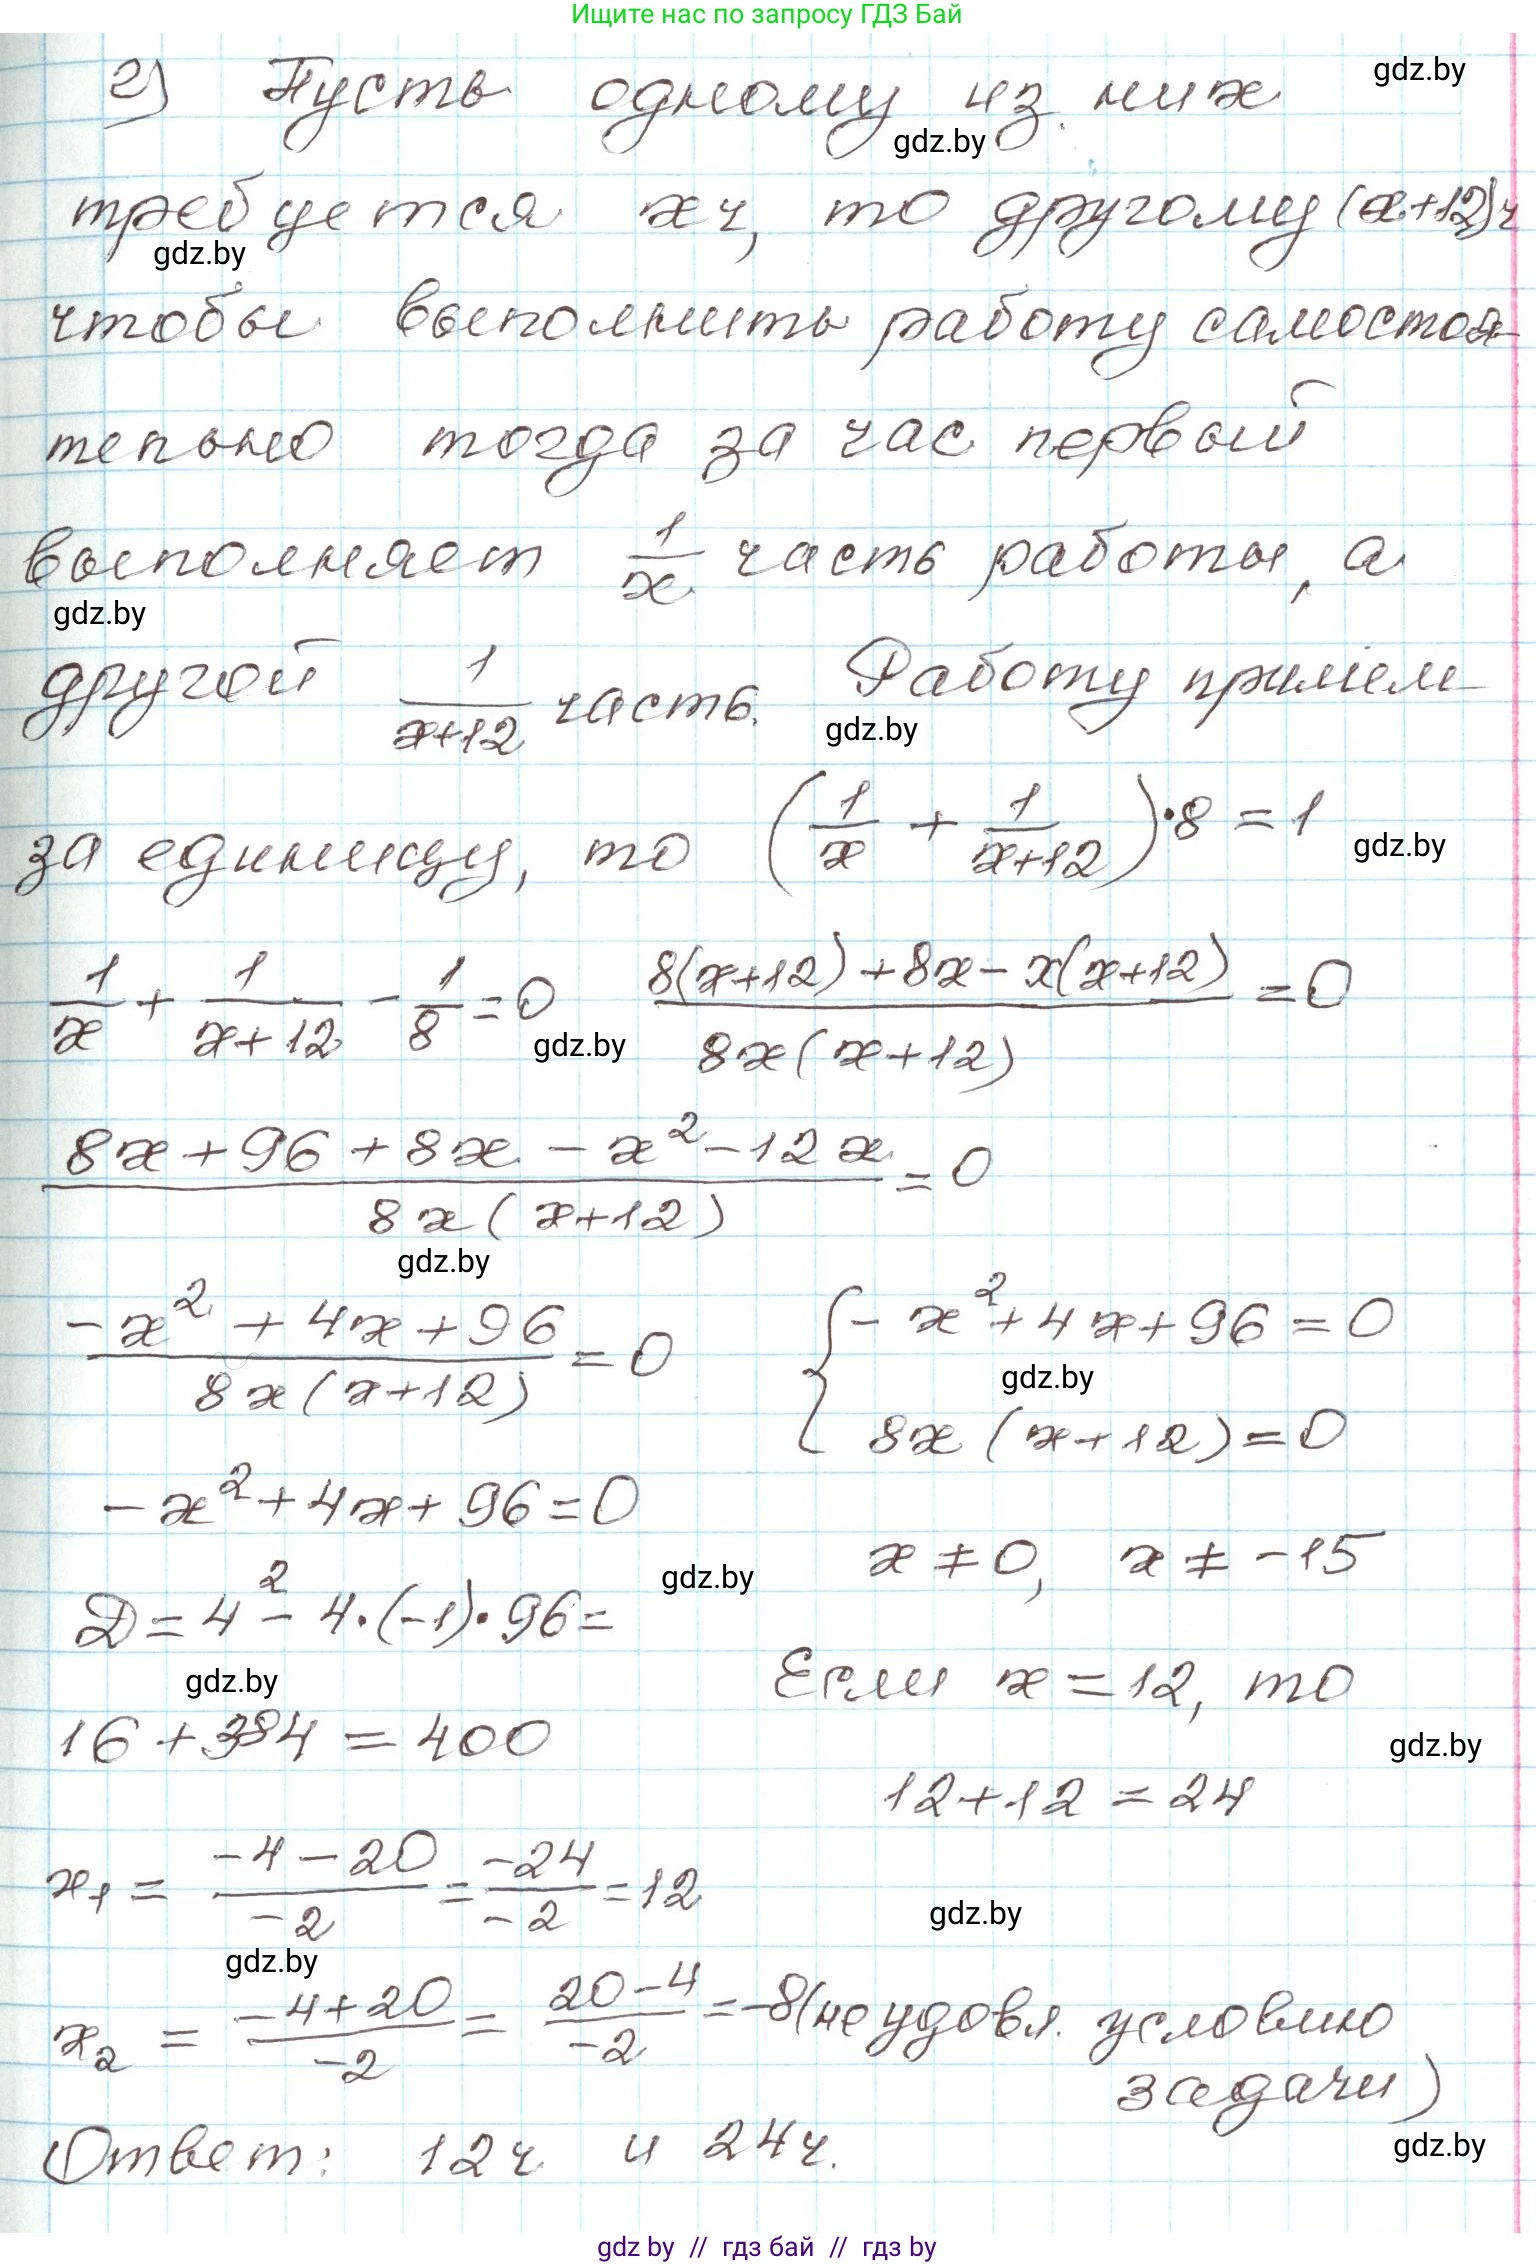 Ищите нас по запросу ГДЗ Бай
2) Пусть одному из них
gdz.by
gdz.by
требуется x ч, то другому (x+12) ч
gdz.by
чтобы выполнить работу самостоя-
тельно тогда за час первый
выполняет 1/x часть работы, а
gdz.by
другой 1/(x+12) часть. Работу примем
gdz.by
за единицу, то (1/x + 1/(x+12))·8 = 1
gdz.by
1/x + 1/(x+12) - 1/8 = 0 (8(x+12)+8x-x(x+12))/(8x(x+12)) = 0
gdz.by
(8x+96+8x-x²-12x)/(8x(x+12)) = 0
gdz.by
(-x²+4x+96)/(8x(x+12)) = 0 { -x²+4x+96=0
gdz.by
8x(x+12)=0
-x²+4x+96=0
x≠0, x≠-15
gdz.by
D=4²-4·(-1)·96=
gdz.by
Если x=12, то
16+384=400
gdz.by
12+12=24
x₁ = (-4-20)/(-2) = (-24)/(-2) = 12
gdz.by
gdz.by
x₂ = (-4+20)/(-2) = (20-4)/(-2) = -8 (не удовл. условию
задачи)
Ответ: 12 ч и 24 ч.
gdz.by
gdz by // гдз бай // гдз by